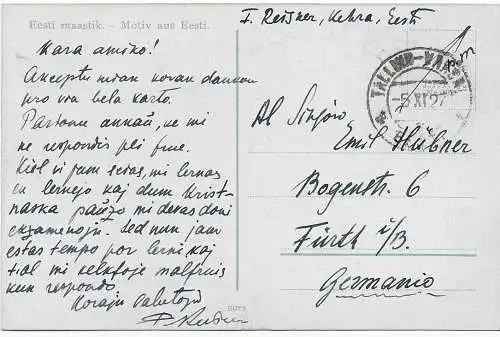 Eesti maastik. - Motiv aus Eesti.
I. Reisner, Kehra, Eesti
Kara amiko!
Akceptu mian koran dankon
pro via bela karto.
Pardonu ankaŭ, ke mi
ne respondis pli frue.
Kiel vi jam scias, mi lernas
en lernejo kaj dum Krist-
naska paŭzo mi devas doni
ekzamenojn. Sed nun jam
estas tempo por lerni kaj
tial mi
kun respondo.
Korajn salutojn
Al Sinjoro
Emil Hübner
Bogenstr. 6
Fürth i/B.
Germanio
-5 XI 27